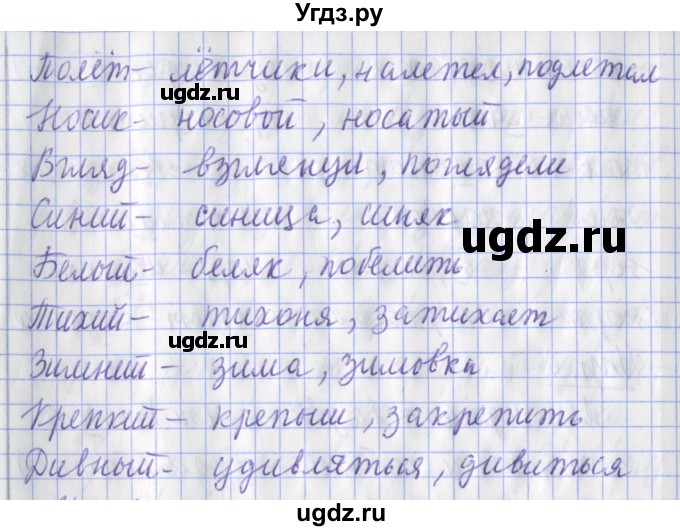 Угдз.ру
Полёт- лётчики, налетел, подлетал
ugdz.ru
Носик- носовой, носатый
Взгляд- взглянул, поглядели
Синий- синица, синяк
ugdz.ru
Белый- беляк, побелить
Тихий- тихоня, затихает
ugdz.ru
Зимний- зима, зимовка
Крепкий- крепыш, закрепить
Дивный- удивляться, дивиться
ugdz.ru
ugdz.ru